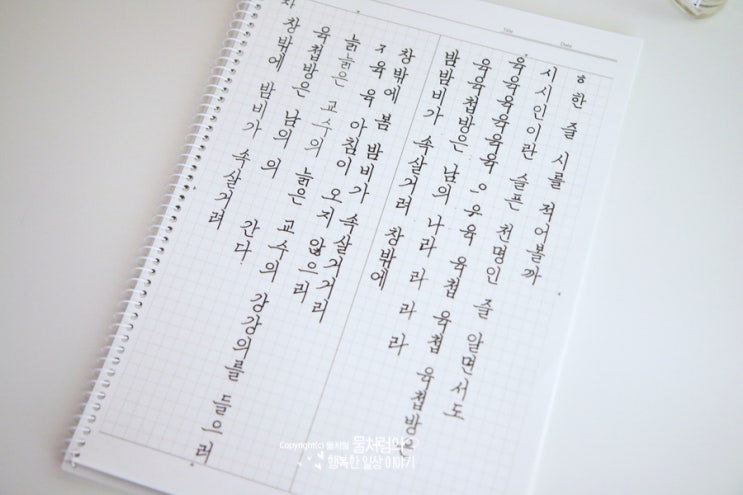 ㅎ 한 줄 시를 적어볼까
시시인이란 슬픈 천명인 줄 알면서도
육육육육육육 ㅇ우육 육첩 육첩방은
육육첩방은 남의 나라 라 라 라
밤밤비가 속살거려 창밖에
창밖에 봄 밤비가 속살거거리리
ㅈ육 육 아침이 오지 않으리
늙늙은 교수의 늙은 교수의 강강의를 들으러
육첩방은 남의 의 간다.
차 창밖에 밤비가 속살거려
Date
Copyright(c) 뭄처럼 뭄처럼의
행복한 일상 이야기